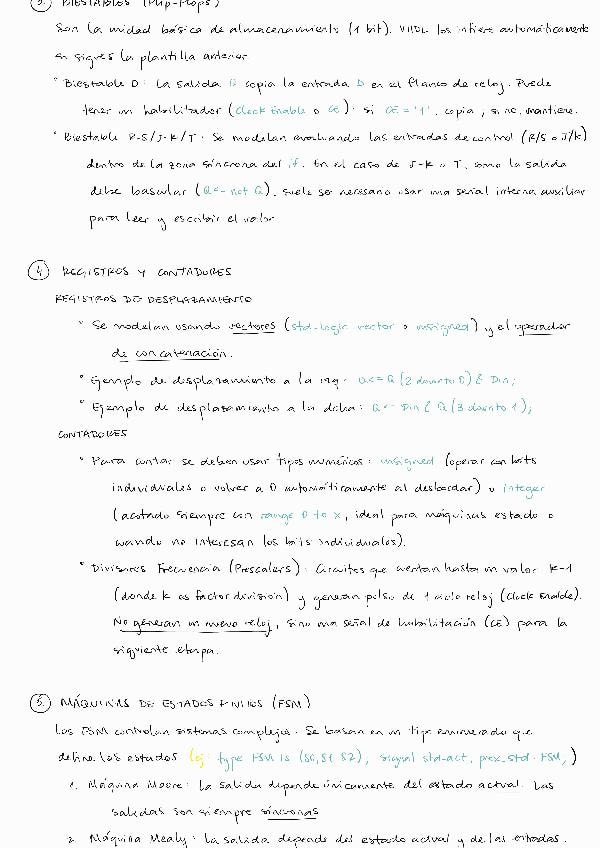 3. BIESTABLES (Flip-Flops)
Son la unidad básica de almacenamiento (1 bit). VHDL los infiere automáticamente
si sigues la plantilla anterior
° Biestable D: La salida Q copia la entrada D en el flanco de reloj. Puede
tener un habilitador (Clock Enable o CE): si CE = '1', copia, si no, mantiene.
° Biestable R-S/J-K/T: Se modelan evaluando las entradas de control (R/S o J/K)
dentro de la zona síncrona del if. En el caso de J-K o T, como la salida
debe bascular (Q <- not Q), suele ser necesario usar una señal interna auxiliar
para leer y escribir el valor
4. REGISTROS Y CONTADORES
REGISTROS DE DESPLAZAMIENTO
° Se modelan usando vectores (std-logic vector o unsigned) y el operador
de concatenación.
° Ejemplo de desplazamiento a la izq: Q <= Q (2 downto 0) & Din;
° Ejemplo de desplazamiento a la dcha: Q <- Din & Q (3 downto 1);
CONTADORES
° Para contar se deben usar tipos numéricos: unsigned (operar con bits
individuales o volver a 0 automáticamente al desbordar) o integer
(acotado siempre con range 0 to x, ideal para máquinas estado o
cuando no interesan los bits individuales).
° Divisores Frecuencia (Prescalers): Circuitos que cuentan hasta un valor K-1
(donde K es factor división) y generan pulso de 1 ciclo reloj (Clock Enable).
No generan un nuevo reloj, sino una señal de habilitación (CE) para la
siguiente etapa.
5. MÁQUINAS DE ESTADOS FINITOS (FSM)
Las FSM controlan sistemas complejos. Se basan en un tipo enumerado que
define los estados (ej: type FSM is (S0, S1, S2), signal std-act, prox_std: FSM;)
1. Máquina Moore: La salida depende únicamente del estado actual. Las
salidas son siempre síncronas
2. Máquina Mealy: La salida depende del estado actual y de las entradas.